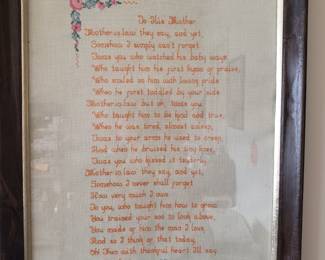 To His Mother
Mother-in-law they say, and yet,
Somehow I simply can't forget
'Twas you who watched his baby ways
Who taught him his first hymn of praise,
Who smiled on him with loving pride
When he first toddled by your side
Mother-in-law but oh, 'twas you
Who taught him to be kind and true,
When he was tired, almost asleep,
'Twas to your arms he used to creep
And when he bruised his tiny knee,
'Twas you who kissed it tenderly.
Mother-in-law they say, and yet,
Somehow I never shall forget
How very much I owe
To you, who taught him how to grow.
You trained your son to look above,
You made of him the man I love,
And so I think of that today,
Oh! Then with thankful heart I'll say